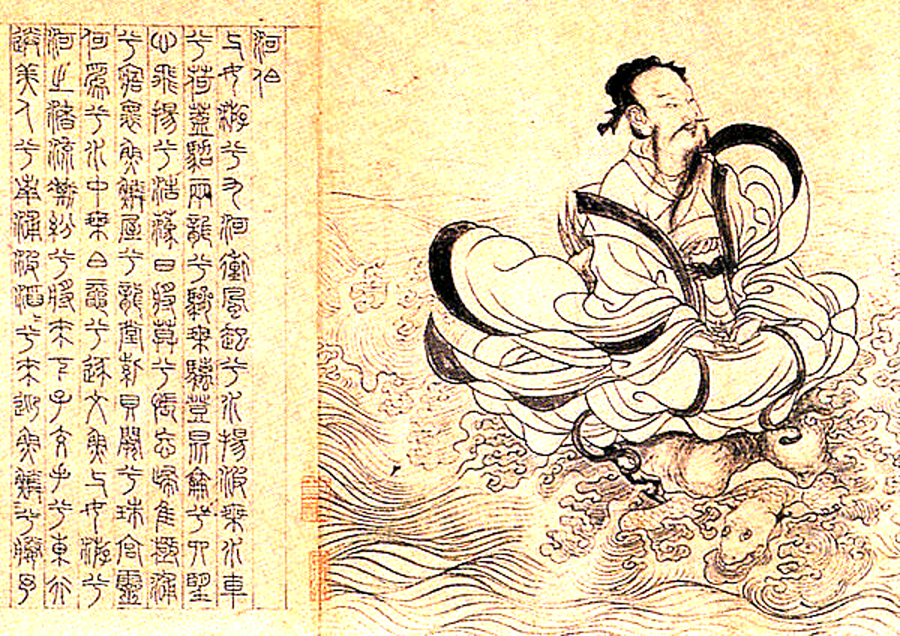 河伯
与女遊兮九河衝風起兮水揚波乘水車
兮荷蓋駕兩龍兮驂乘螭登昆侖兮四望
心飛揚兮浩蕩日將莫兮悵忘歸惟極浦
兮寤懷魚鱗屋兮龍堂紫貝闕兮珠宮靈
何爲兮水中乘白黿兮逐文魚与女遊兮
河之渚流澌紛兮將來下子交手兮東行
送美人兮南浦波滔〻兮來迎魚鱗〻兮媵予